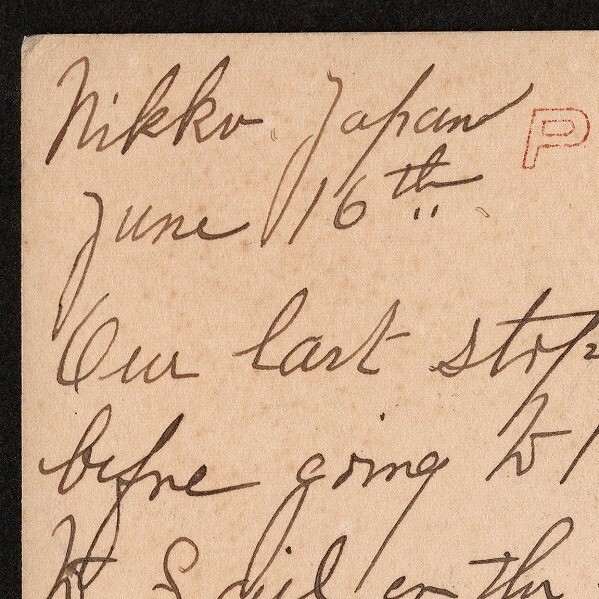 Nikko, Japan
P
June 16th
Our last stop
before going to
to Sail on the